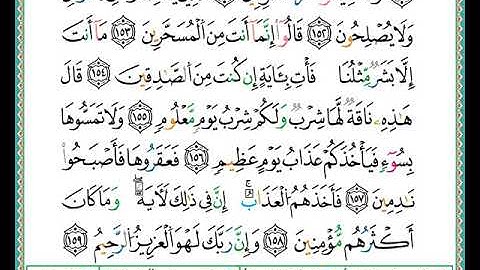 وَلَا يُصْلِحُونَ ١٥٢ قَالُوٓا۟ إِنَّمَآ أَنتَ مِنَ ٱلْمُسَحَّرِينَ ١٥٣ مَآ أَنتَ
إِلَّا بَشَرٌ مِّثْلُنَا فَأْتِ بِـَٔايَةٍ إِن كُنتَ مِنَ ٱلصَّـٰدِقِينَ ١٥٤ قَالَ
هَـٰذِهِۦ نَاقَةٌ لَّهَا شِرْبٌ وَلَكُمْ شِرْبُ يَوْمٍ مَّعْلُومٍ ١٥٥ وَلَا تَمَسُّوهَا
بِسُوٓءٍ فَيَأْخُذَكُمْ عَذَابُ يَوْمٍ عَظِيمٍ ١٥٦ فَعَقَرُوهَا فَأَصْبَحُوا۟
نَـٰدِمِينَ ١٥٧ فَأَخَذَهُمُ ٱلْعَذَابُ ۗ إِنَّ فِى ذَٰلِكَ لَـَٔايَةً ۖ وَمَا كَانَ
أَكْثَرُهُم مُّؤْمِنِينَ ١٥٨ وَإِنَّ رَبَّكَ لَهُوَ ٱلْعَزِيزُ ٱلرَّحِيمُ ١٥٩